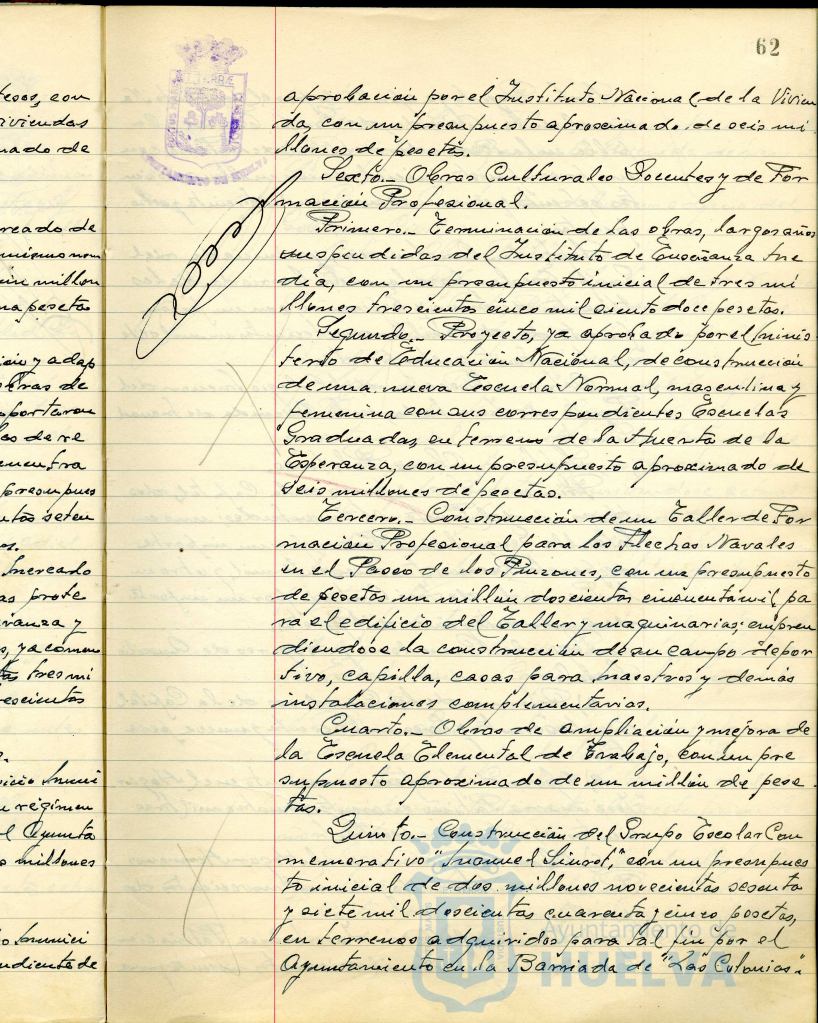 62
tesos, con
viviendas
mado de
ercado de
mismo nom
un millon
na pesetas
ción y adap
obras de
mportaron
los de re
cuentra
presupues
ntos seten
os.
Mercado
as prote
eranza y
s, ya como
tres mi
rescientos
s.
icio Muni
u régimen
l Ayunta
o millones
lo Munici
ndiente de
aprobación por el Instituto Nacional de la Vivien
da, con un presupuesto aproximado de seis mi
llones de pesetas.
Sexto.- Obras Culturales Docentes y de For
mación Profesional.
Primero.- Terminación de las obras, largos años
suspendidas del Instituto de Enseñanza Me
dia, con un presupuesto inicial de tres mi
llones trescientas cinco mil ciento doce pesetas.
Segundo.- Proyecto, ya aprobado por el Minis
terio de Educación Nacional, de construcción
de una nueva Escuela Normal, masculina y
femenina con sus correspondientes Escuelas
Graduadas, en terreno de la Huerta de la
Esperanza, con un presupuesto aproximado de
seis millones de pesetas.
Tercero.- Construcción de un Taller de For
mación Profesional para los Flechas Navales
en el Paseo de los Pinzones, con un presupuesto
de pesetas un millón doscientas cincuenta mil, pa
ra el edificio del Taller y maquinarias; empren
diendose la construcción de su campo depor
tivo, capilla, casas para Maestros y demás
instalaciones complementarias.
Cuarto.- Obras de ampliación y mejora de
la Escuela Elemental de Trabajo, con un pre
supuesto aproximado de un millón de pese
tas.
Quinto.- Construcción del Grupo Escolar Con
memorativo "Manuel Siurot", con un presupues
to inicial de dos millones novecientas sesenta
y siete mil doscientas cuarenta y cinco pesetas,
en terrenos adquiridos para tal fin por el
Ayuntamiento en la Barriada de "Las Colonias".
Ayuntamiento de
HUELVA